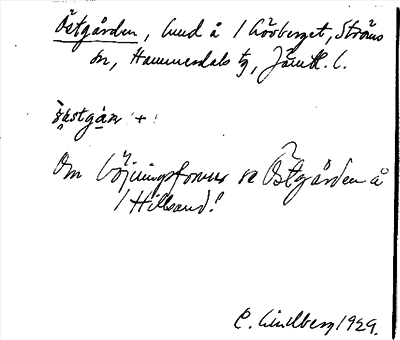 Östgården, lund å 1 Lövberget, Ströms
sn, Hammerdals tg, Jämtl. l.
östgån +
Om böjningsformer se Östgården å
1 Hillsand!
C. Lindberg 1929.